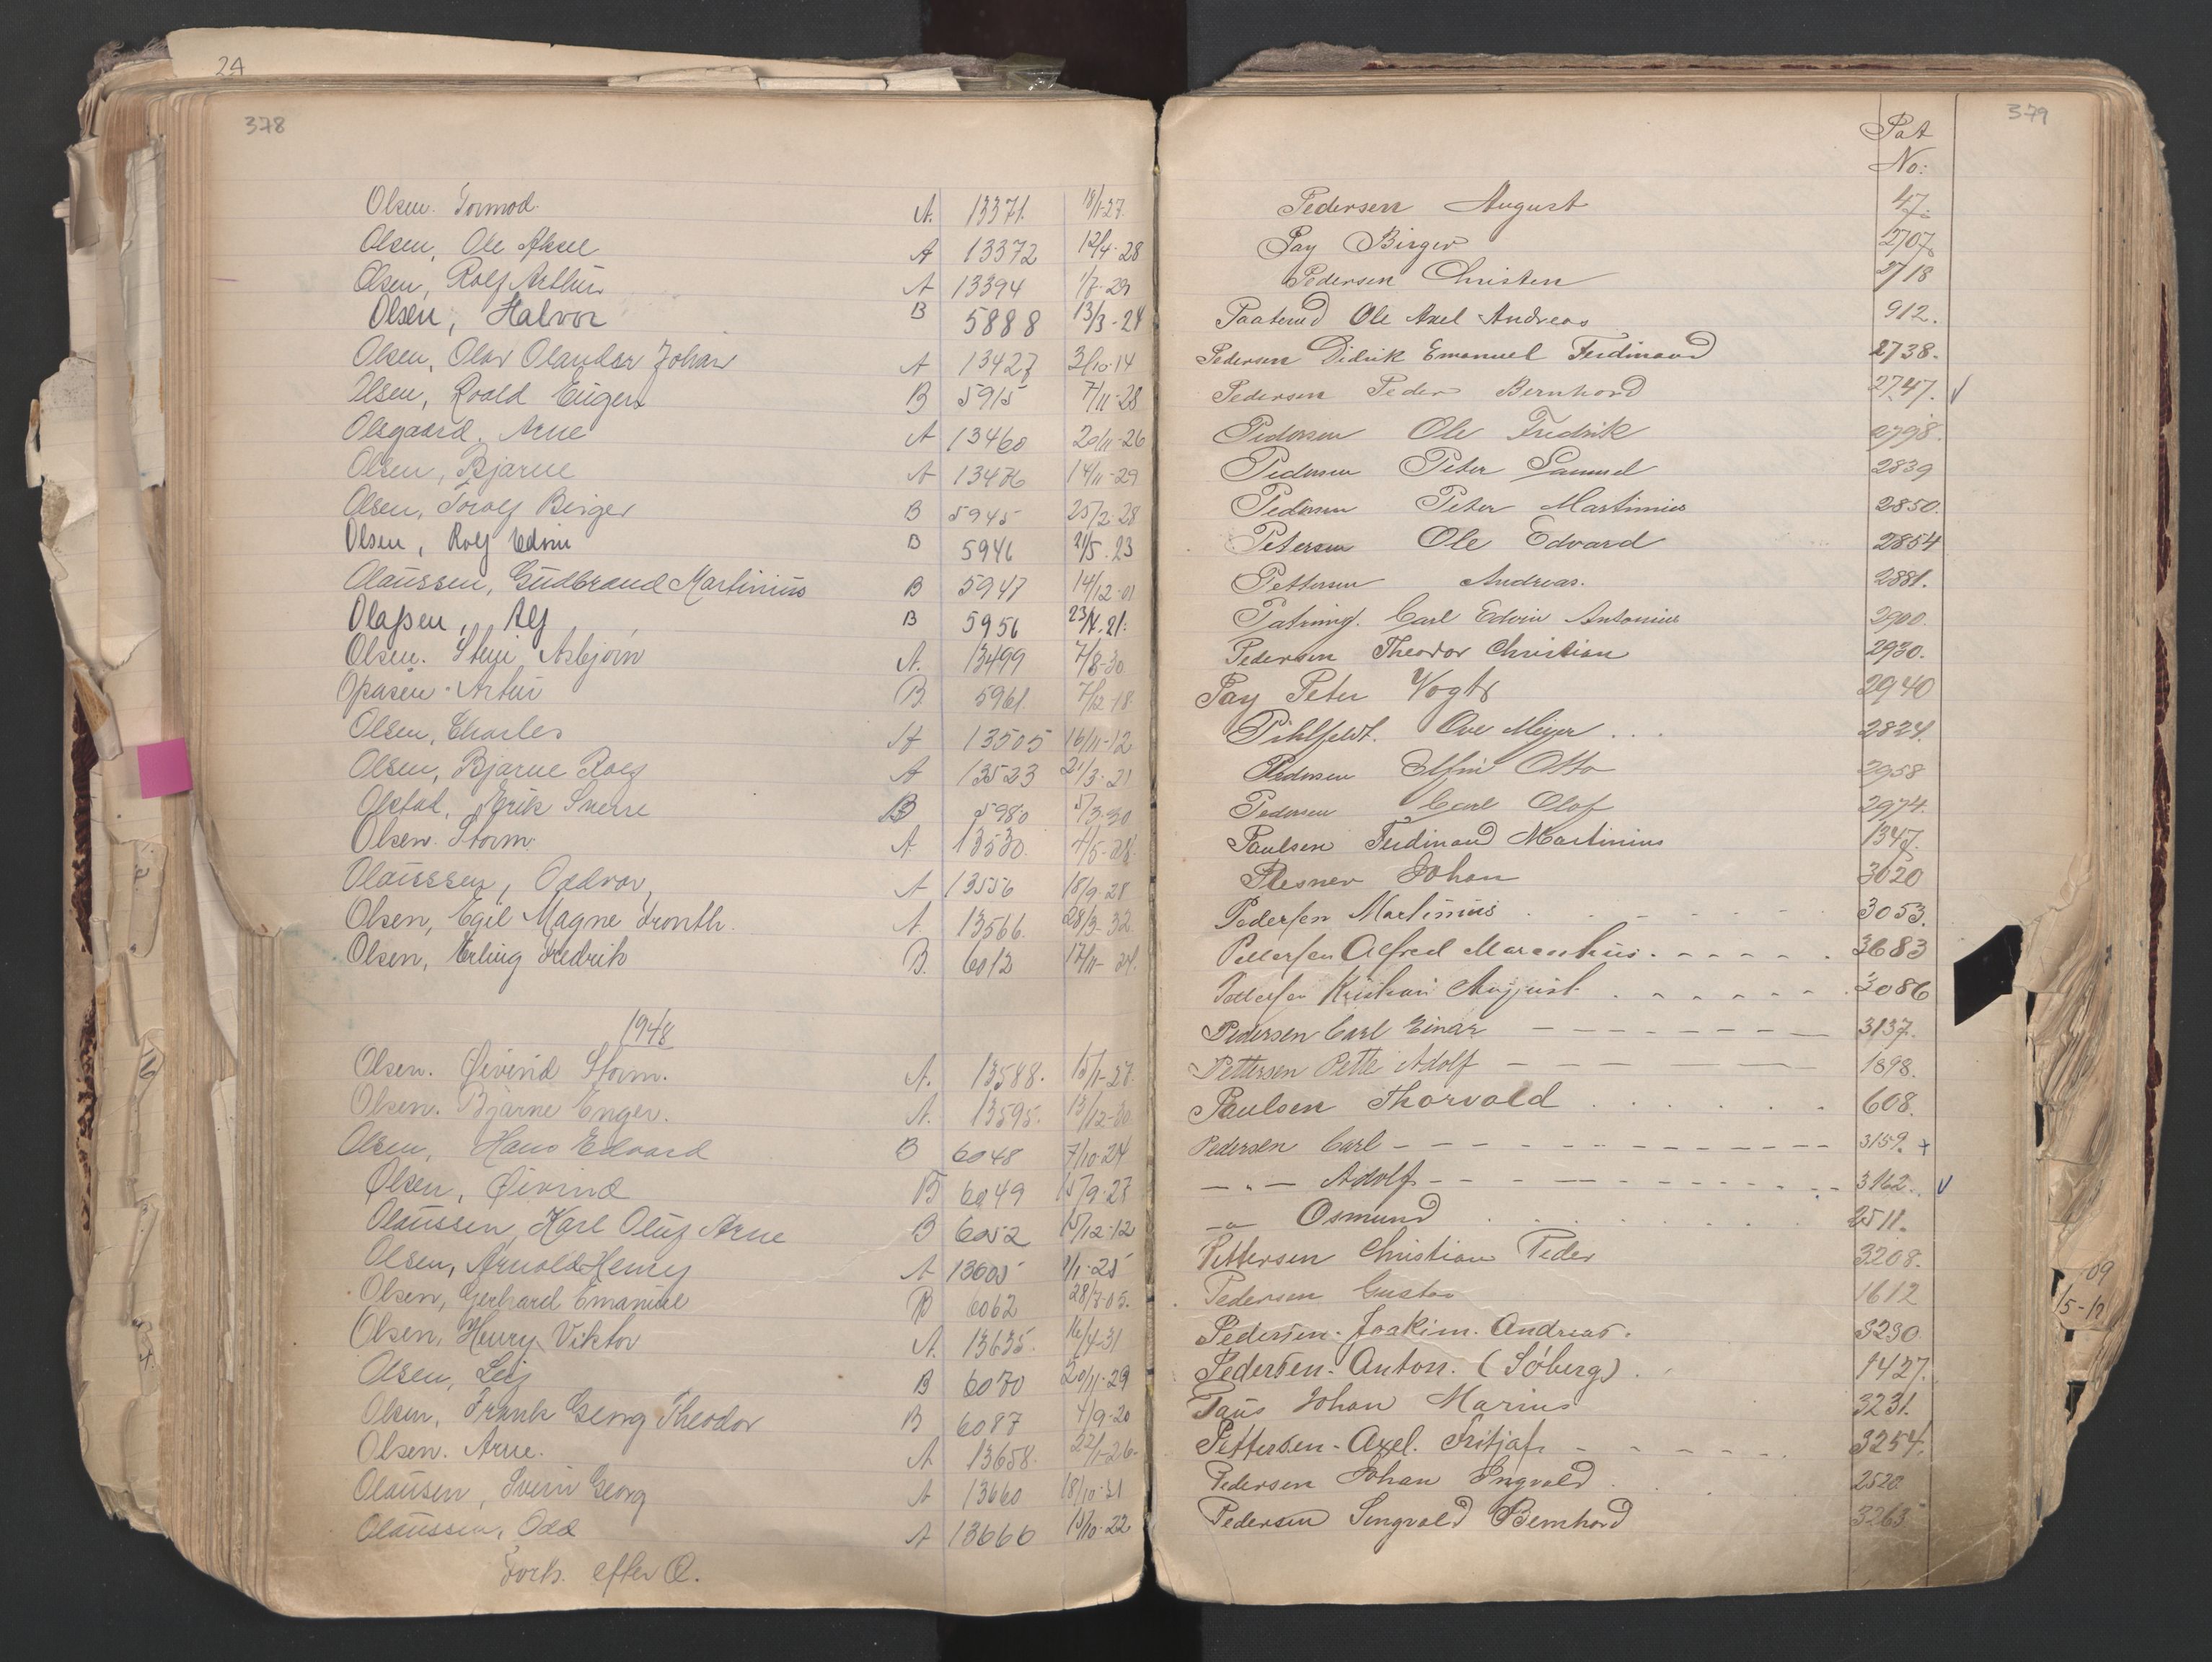 24
378
Olsen. Tormod. A. 13371. 18/1-27.
Olsen, Ole Aksel A 13372 12/4-28
Olsen, Rolf Arthur A 13394 1/7-29
Olsen, Halvor B 5888 13/3-24
Olsen, Olav Olander Johan A 13427 3/10-14
Olsen, Roald Eugen B 5915 7/11-28
Olsgaard, Arne A 13460 20/11-26
Olsen, Bjarne A 13476 14/11-29
Olsen, Torolf Birger B 5945 25/2-28
Olsen, Rolf Edvin B 5946 21/5.23
Olaussen, Gudbrand Martinius B 5947 14/12-01
Olaßen, Alf B 5956
Olsen. Stein Asbjørn A. 13499 7/8-30
Opasen. Artur B. 5961 7/12-18
Olsen, Charles A 13505 16/11-12
Olsen, Bjarne Rolf A 13523 21/3-21
Olstad, Erik Sverre B 5980 5/3-30
Olsen. Storm. A. 13530.
Olaussen, Oddvar, A 13556 18/9-28
Olsen, Egil Magne Tronth. A. 13566. 28/3-32
Olsen, Erling Fredrik B. 6012
1948
Olsen. Øivind Storm. A. 13588. 15/1-27.
Olsen. Bjarne Enger. A. 13595. 13/12-30
Olsen, Hans Edvard B 6048 7/10-24
Olsen, Øivind B 6049 15/9-27
Olaussen, Karl Oluf Arne B 6052 15/12-12
Olsen, Arnold Henry A 13605
Olsen, Gerhard Emanuel B 6062 28/7-05.
Olsen, Henry Viktor A. 13635. 16/4-31
Olsen, Leif B 6070 20/11-29
Olsen, Frank Georg Theodor B 6087 4/9-20
Olsen. Arne. A 13658. 22/1-26.
Olausen, Svein Georg A 13660 18/10-31
Olaussen, Odd A 13666 15/10-22
Forts. efter Q.
379
Pat
No:
Pedersen August 47.
Pay Birger 2707.
Pedersen Christen 2718
Paaterud Ole Axel Andreas 912.
Pedersen Didrik Emanuel Ferdinand 2738.
Pedersen Peder Bernhard 2747. √
Pedersen Ole Fredrik 2798.
Pedersen Peter Samuel 2839
Pedersen Peter Martinius 2850.
Petersen Ole Edvard 2854
Pettersen Andreas. 2881.
Carl Edwin Antonius 2900.
Pedersen Theodor Christian 2930.
Pay Peter Vogt 2940
Pihlfeldt. Ove Meyer . . . 2824.
Pedersen Elfin Otto 2958
Pedersen Carl Olof 2974.
Paulsen Ferdinand Martinius 1347.
Plesner Johan 3020
Pedersen Martinius . - - - - 3053.
Pettersen Alfred Marenthius. - - - - . 3683
Pettersen Kristian August . - - - - . 3086
Pedersen Carl Einar - - - - - - 3137.
Pettersen Petter Adolf - - - - 1898.
Paulsen Thorvald . . . . . . 608.
Pedersen Carl - - - - - - - - - 3159. +
- „ - Adolf - - - - - - - - 3162. √
- „ Osmund . . . . . . 2511.
Pettersen Christian Peder 3208.
Pedersen Gustav 1612
Pedersen. Joakim. Andreas. 3230
Pedersen. Anton. (Søberg) . . 1427.
Paus Johan Marius 3231.
Pettersen. Axel. Fritjof. - - - - - 3254.
Pedersen Johan Ingvald . . . 2520
Pedersen Singvald Bernhard 3263
09
15-12